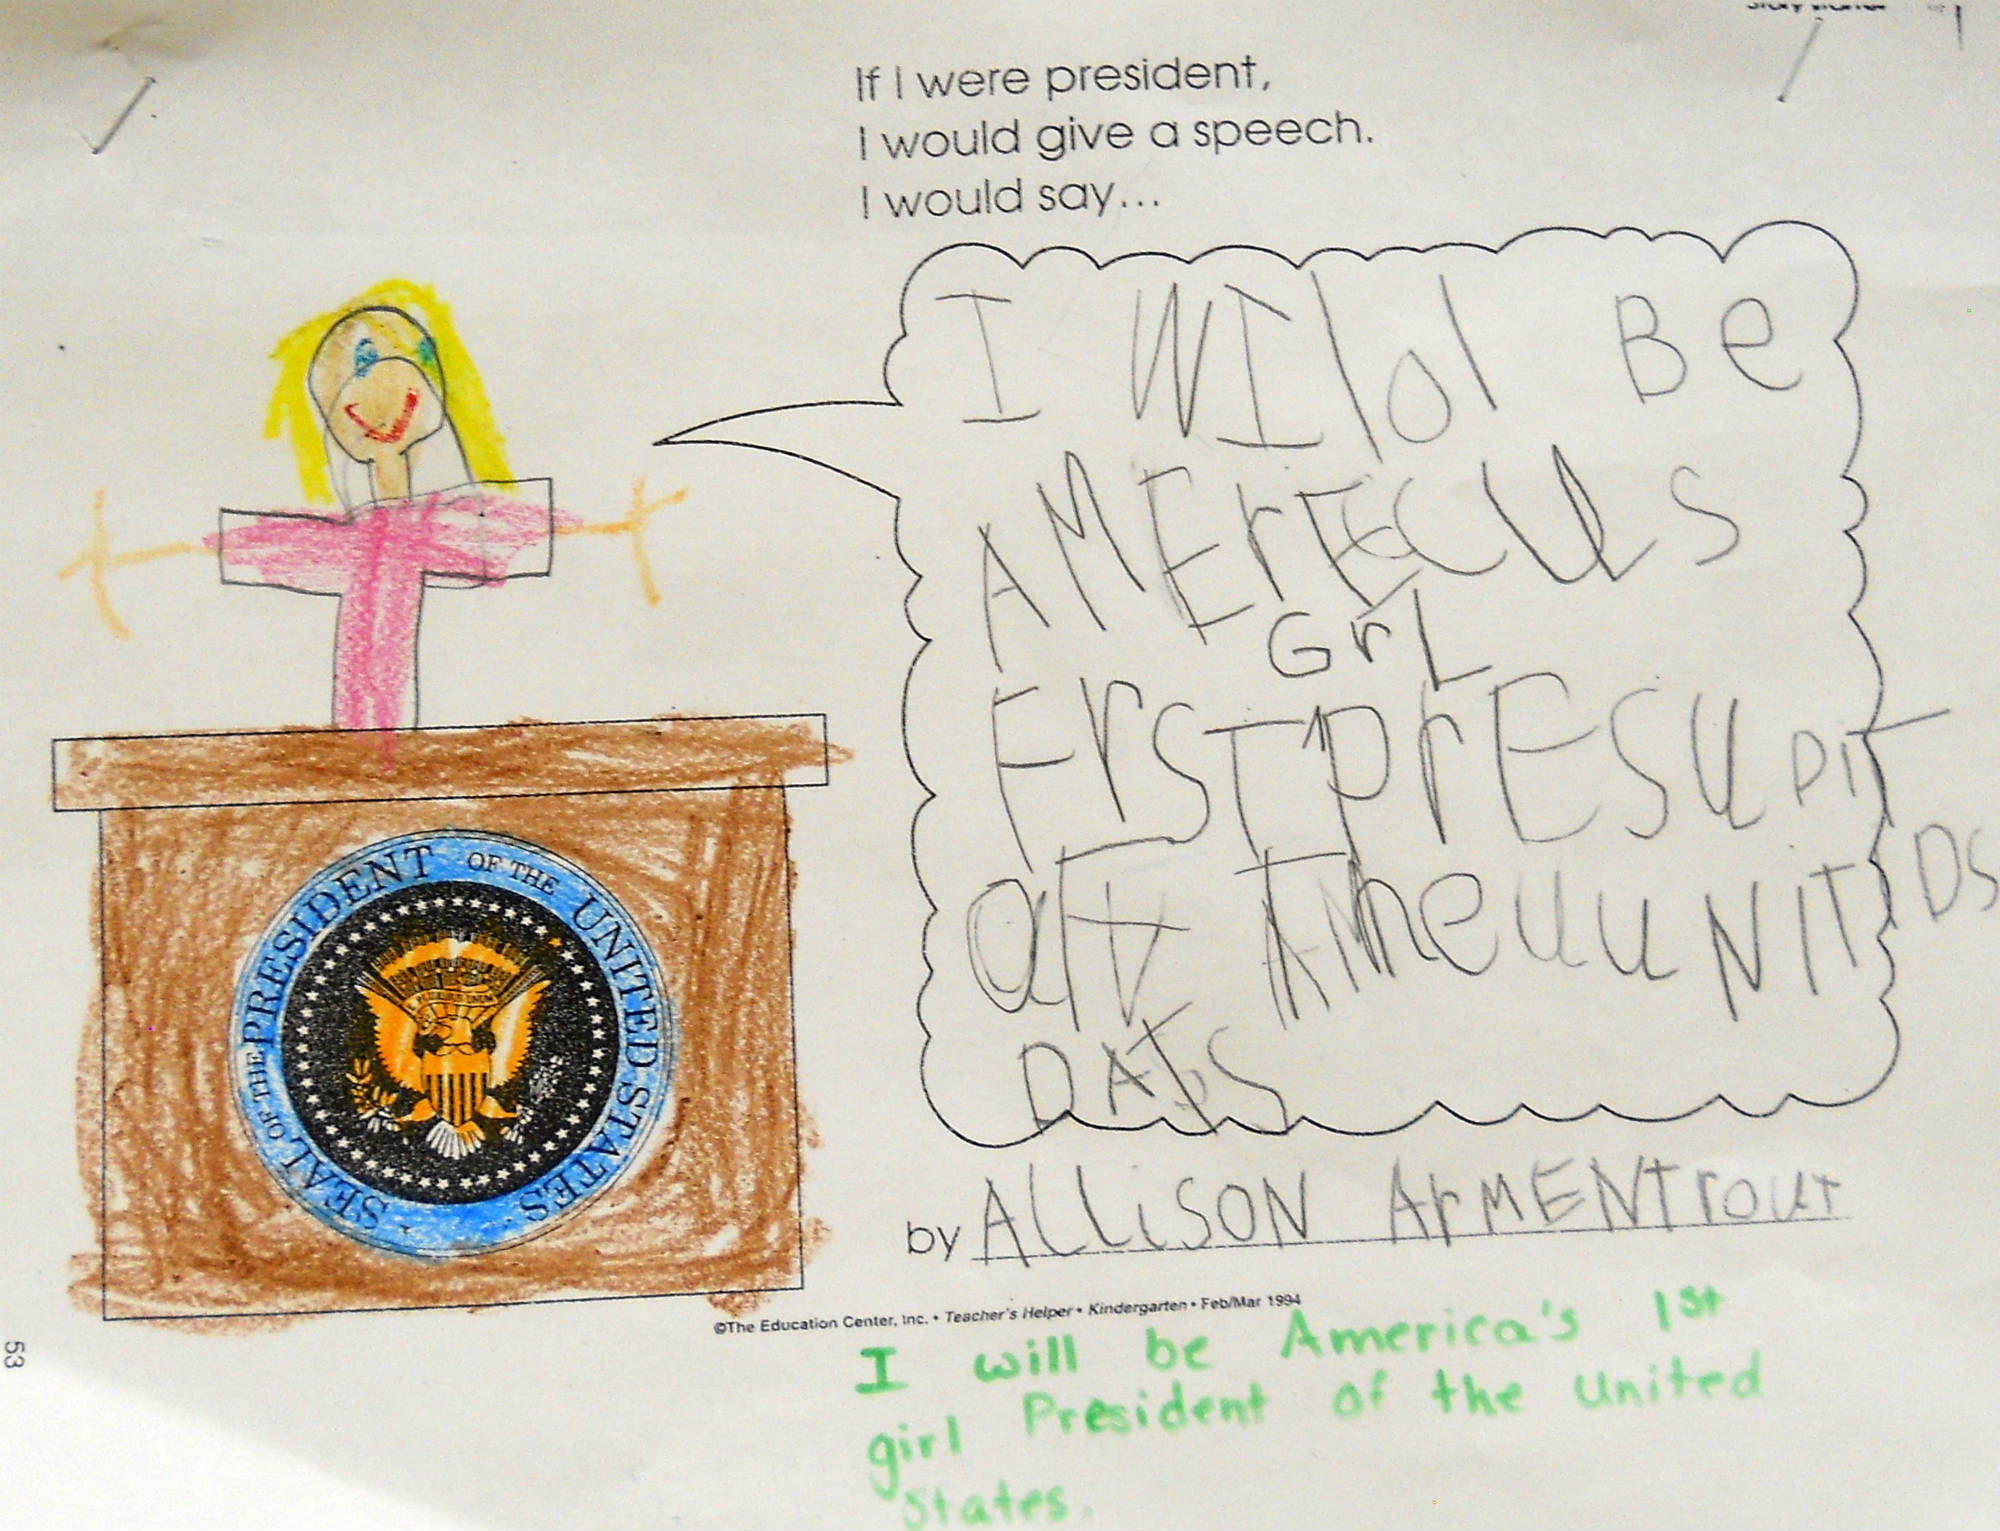 If I were president,
I would give a speech.
I would say...
I WIlol Be
AMErECUS
GrL
FrST PrESUDIT
Off theuuNITDS
DATS
by ALLiSON ArMENTrouT
©The Education Center, Inc. • Teacher's Helper • Kindergarten • Feb/Mar 1994
I will be America's 1st
girl President of the United
States.
SEAL OF THE PRESIDENT OF THE UNITED STATES
53